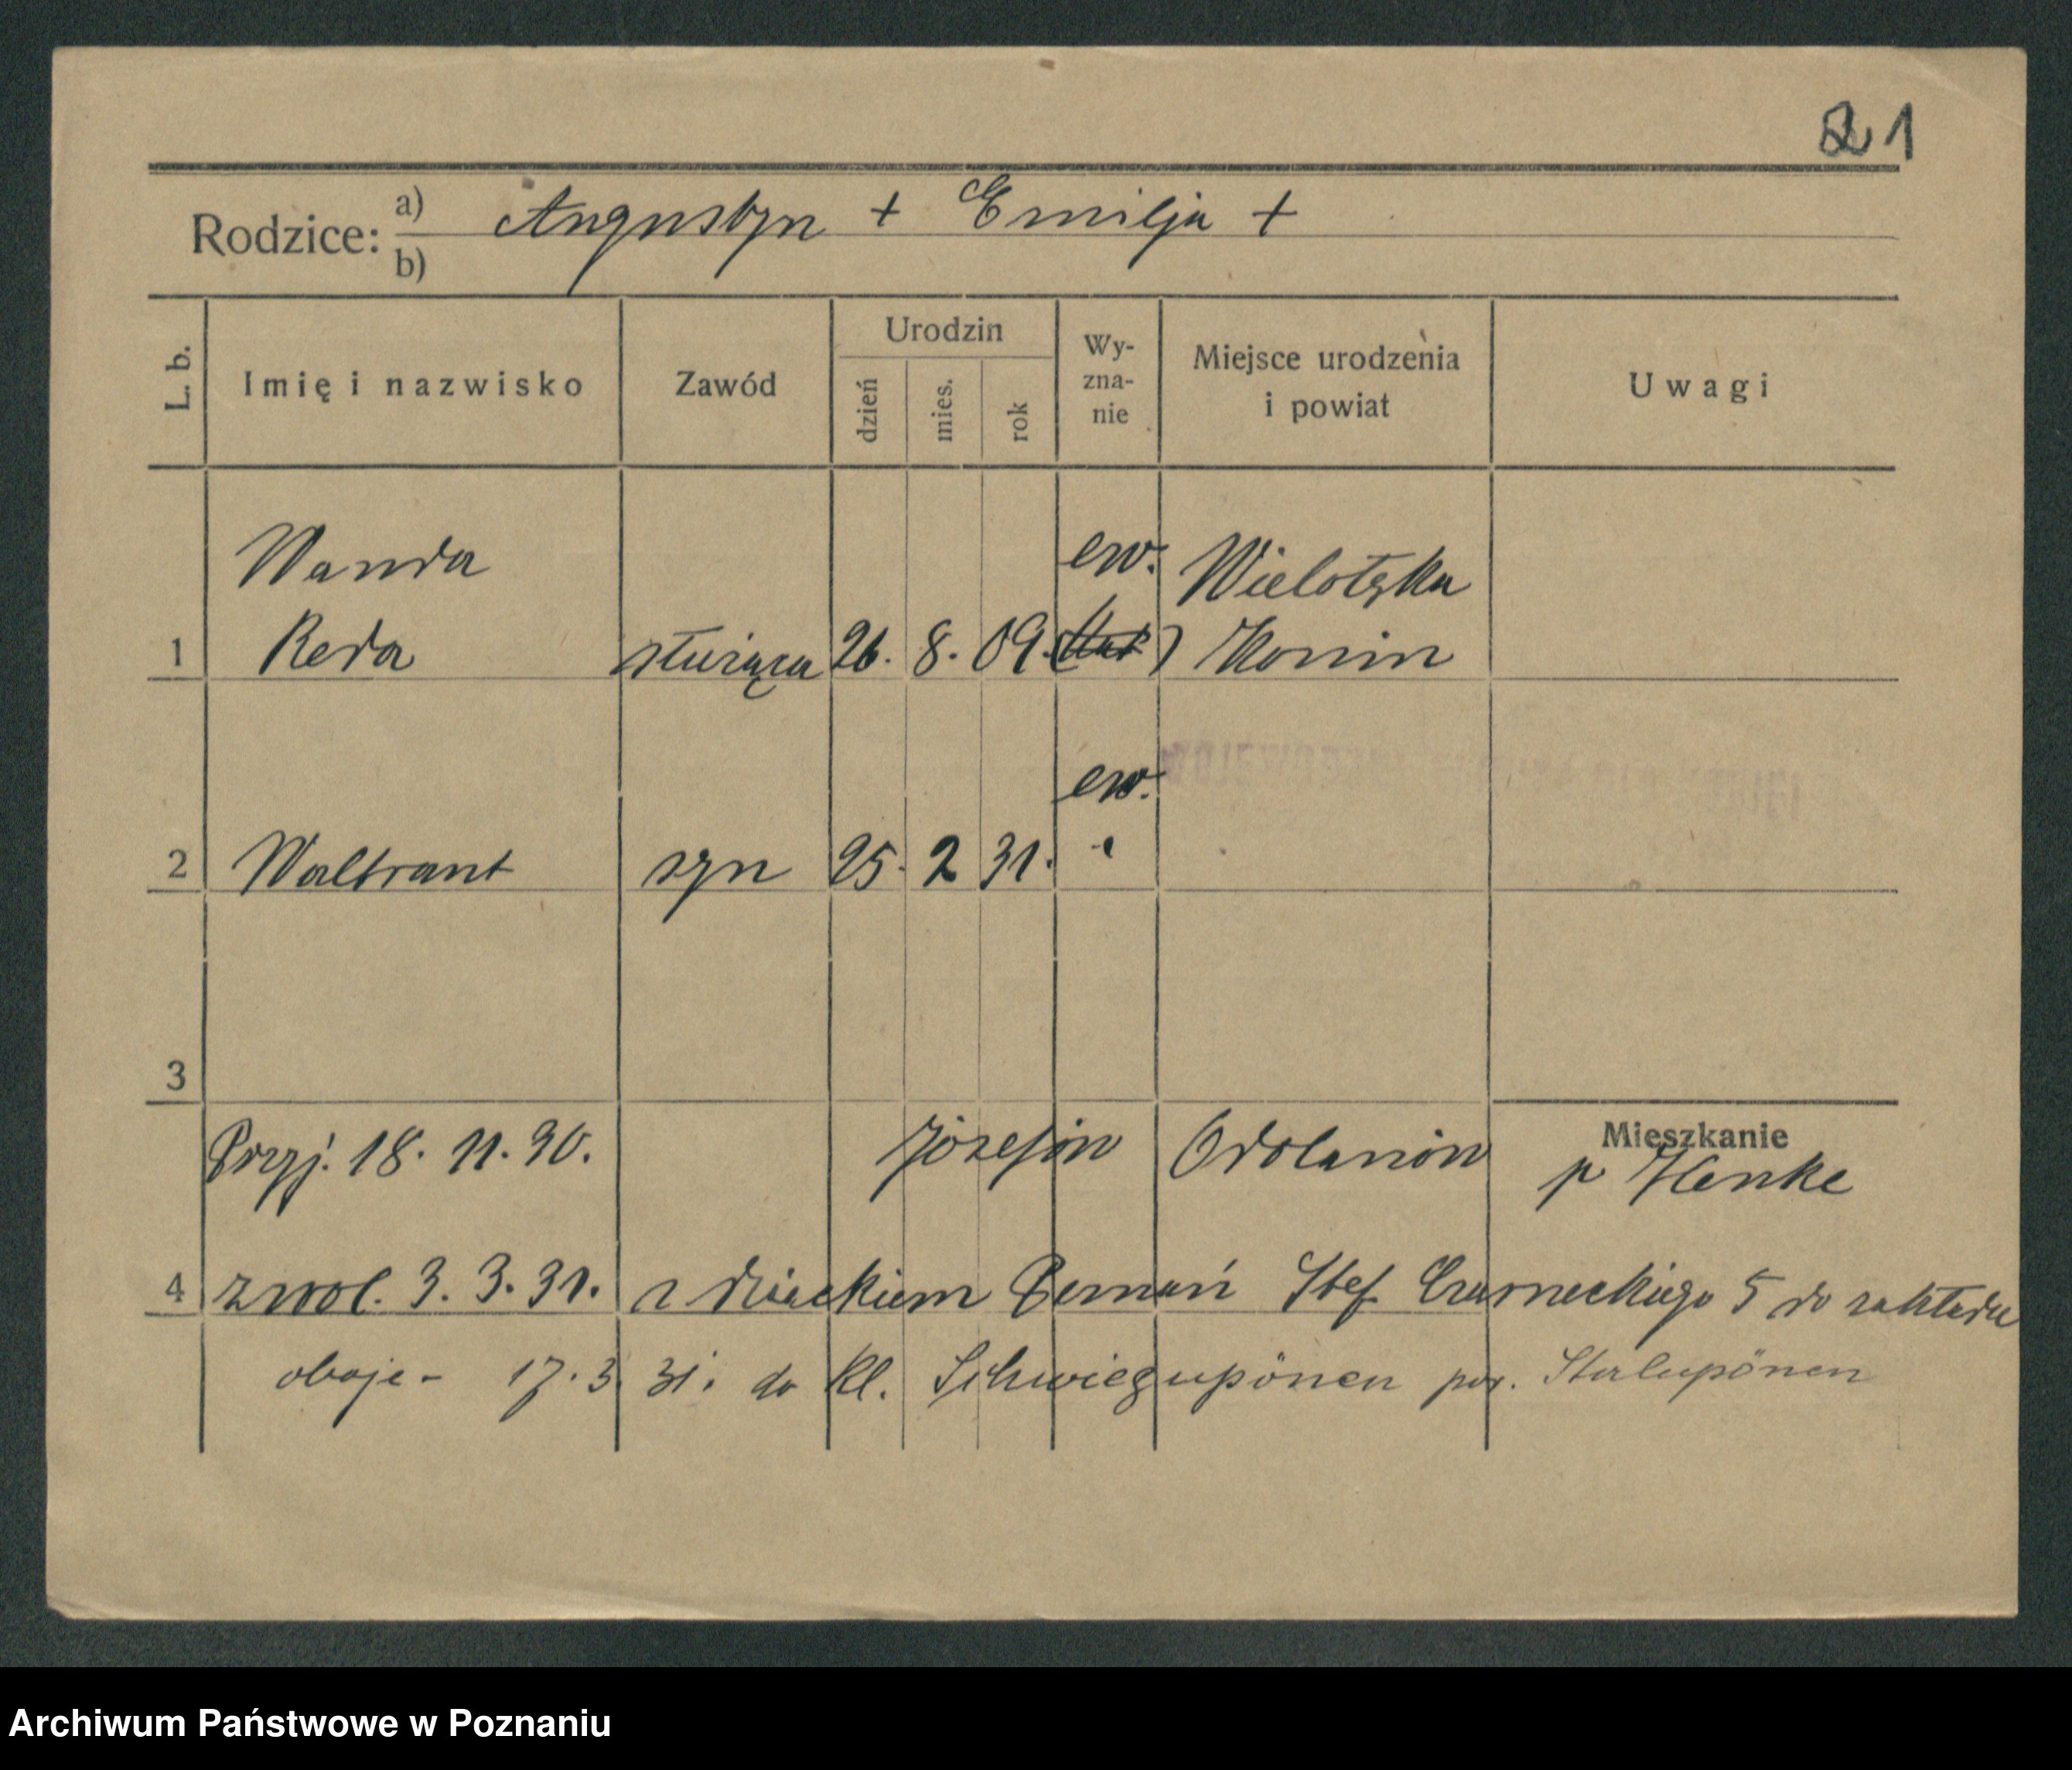 21
Rodzice: a) Angustyn + Emilja +
b)
L. b. Imię i nazwisko Zawód Urodzin dzień mies. rok Wy-zna-nie Miejsce urodzenia i powiat Uwagi
Wanda ew. Wielołęka
1 Reda służąca 26. 8. 09. Konin
ew.
2 Waltraut syn 25. 2 31. "
3
Mieszkanie
Przyj. 18. 11. 30. Józefów Odolanów p Henke
4 zwol. 3. 3. 31. z dzieckiem Poznań Stef Czarneckiego 5 do zakładu
oboje - 17. 3. 31. do Kl. Schwiegupönen pow. Stalupönen
Archiwum Państwowe w Poznaniu